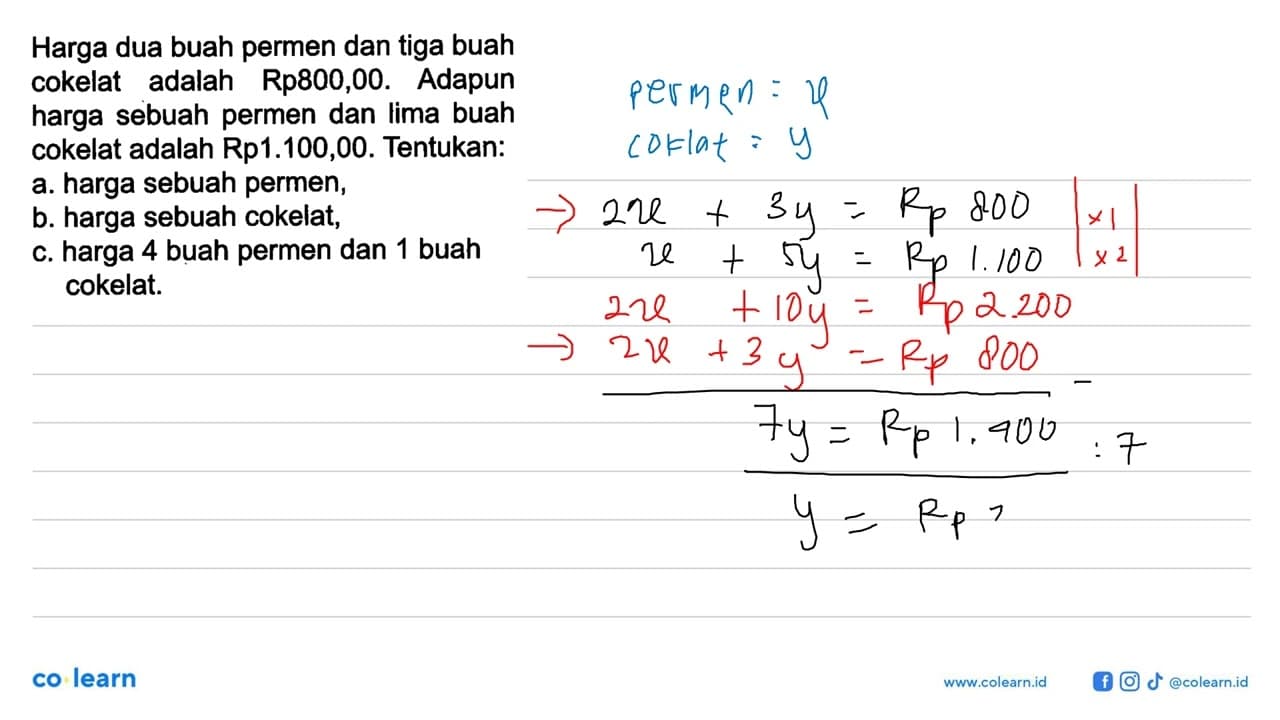 Harga dua buah permen dan tiga buah
cokelat adalah Rp800,00. Adapun
harga sebuah permen dan lima buah
cokelat adalah Rp1.100,00. Tentukan:
a. harga sebuah permen,
b. harga sebuah cokelat,
c. harga 4 buah permen dan 1 buah
cokelat.
permen = x
coklat = y
→ 2x + 3y = Rp 800 | ×1 |
x + 5y = Rp 1.100 | ×2 |
2x + 10y = Rp 2.200
→ 2x + 3y = Rp 800 −
7y = Rp 1.400 : 7
y = Rp
co learn
www.colearn.id
@colearn.id